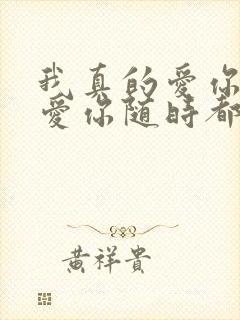 我真的愛你
愛你隨時都
黃祥貴